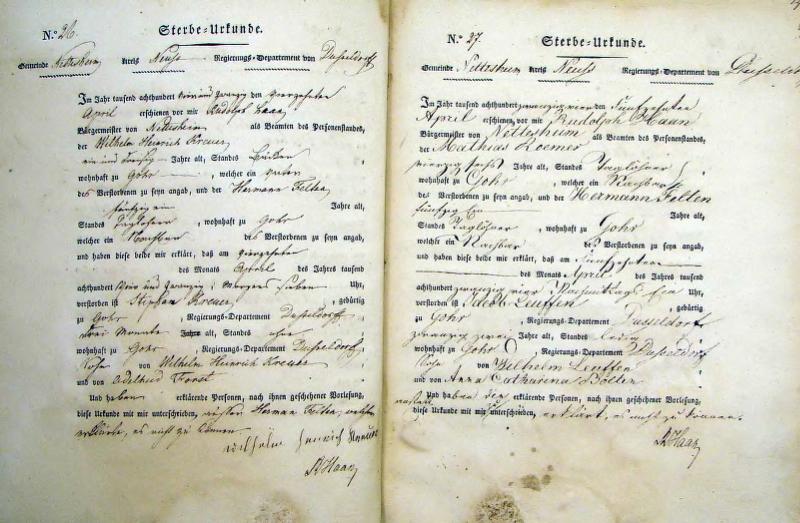 N.o 26
Sterbe-Urkunde.
Gemeinde Nettesheim Kreis Neuss Regierungs-Departement von Dusseldorf
Im Jahr tausend achthundert vier und zwanzig den vierzehnten
April erschienen vor mir Rudolph Haan
Bürgermeister von Nettesheim als Beamten des Personenstandes,
der Wilhelm Heinrich Kreuer
ein und dreißig Jahre alt, Standes
wohnhaft zu Gohr, welcher ein Vater
des Verstorbenen zu seyn angab, und der Hermann Felten
fünfzig ein Jahre alt,
Standes Taglöhner, wohnhaft zu Gohr
welcher ein Nachbar des Verstorbenen zu seyn angab,
und haben diese beide mir erklärt, daß am vierzehnten
des Monats April des Jahres tausend
achthundert vier und zwanzig, Morgens sieben Uhr,
verstorben ist Stephan Kreuer, gebürtig
zu Gohr, Regierungs-Departement Dusseldorf
drei Monate Jahre alt, Standes
wohnhaft zu Gohr, Regierungs-Departement Dusseldorf
Sohn von Wilhelm Heinrich Kreuer
und von Adelheid Forst
Und haben erklärende Personen, nach ihnen geschehener Vorlesung,
diese Urkunde mit mir unterschrieben, außer Herman Felten, welcher
erklärte, es nicht zu können
Wilhelm Henrich
R Haan
N.o 27.
Sterbe-Urkunde.
Gemeinde Nettesheim Kreis Neuss Regierungs-Departement von Dusseldorf
Im Jahr tausend achthundert zwanzig vier den fünfzehnten
April erschienen, vor mir Rudolph Haan
Bürgermeister von Nettesheim als Beamten des Personenstandes,
der Mathias Roemer
vierzig sechs Jahre alt, Standes Taglöhner,
wohnhaft zu Gohr, welcher ein Nachbar
des Verstorbenen zu seyn angab, und der Hermann Felten
fünfzig Ein Jahre alt,
Standes Taglöhner, wohnhaft zu Gohr
welcher ein Nachbar des Verstorbenen zu seyn angab,
und haben diese beide mir erklärt, daß am fünfzehnten
des Monats April des Jahres tausend
achthundert zwanzig vier Nachmittags Ein Uhr,
verstorben ist Jacob Leuffen, gebürtig
zu Gohr, Regierungs-Departement Dusseldorf
zwanzig zwei Jahre alt, Standes ledig
wohnhaft zu Gohr, Regierungs-Departement Dusseldorf
Sohn von Wilhelm Leuffen
und von Anna Catharina Bölter
Und haben die erklärende Personen, nach ihnen geschehener Vorlesung,
diese Urkunde mit mir unterschrieben, erklärt, es nicht zu können.
R Haan